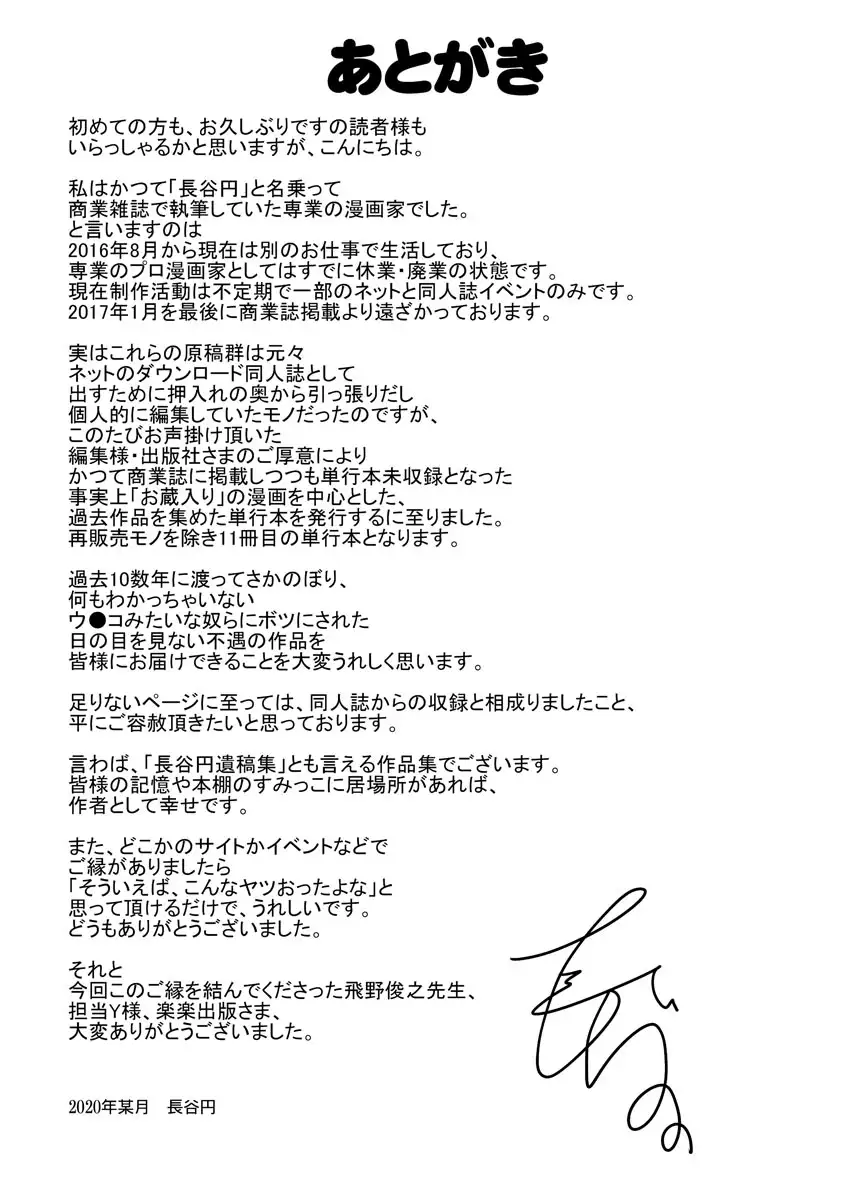 あとがき
初めての方も、お久しぶりですの読者様も
いらっしゃるかと思いますが、こんにちは。
私はかつて「長谷円」と名乗って
商業雑誌で執筆していた専業の漫画家でした。
と言いますのは
2016年8月から現在は別のお仕事で生活しており、
専業のプロ漫画家としてはすでに休業・廃業の状態です。
現在制作活動は不定期で一部のネットと同人誌イベントのみです。
2017年1月を最後に商業誌掲載より遠ざかっております。
実はこれらの原稿群は元々
ネットのダウンロード同人誌として
出すために押入れの奥から引っ張りだし
個人的に編集していたモノだったのですが、
このたびお声掛け頂いた
編集様・出版社さまのご厚意により
かつて商業誌に掲載しつつも単行本未収録となった
事実上「お蔵入り」の漫画を中心とした、
過去作品を集めた単行本を発行するに至りました。
再販売モノを除き11冊目の単行本となります。
過去10数年に渡ってさかのぼり、
何もわかっちゃいない
ウ●コみたいな奴らにボツにされた
日の目を見ない不遇の作品を
皆様にお届けできることを大変うれしく思います。
足りないページに至っては、同人誌からの収録と相成りましたこと、
平にご容赦頂きたいと思っております。
言わば、「長谷円遺稿集」とも言える作品集でございます。
皆様の記憶や本棚のすみっこに居場所があれば、
作者として幸せです。
また、どこかのサイトかイベントなどで
ご縁がありましたら
「そういえば、こんなヤツおったよな」と
思って頂けるだけで、うれしいです。
どうもありがとうございました。
それと
今回このご縁を結んでくださった飛野俊之先生、
担当Y様、楽楽出版さま、
大変ありがとうございました。
2020年某月　長谷円